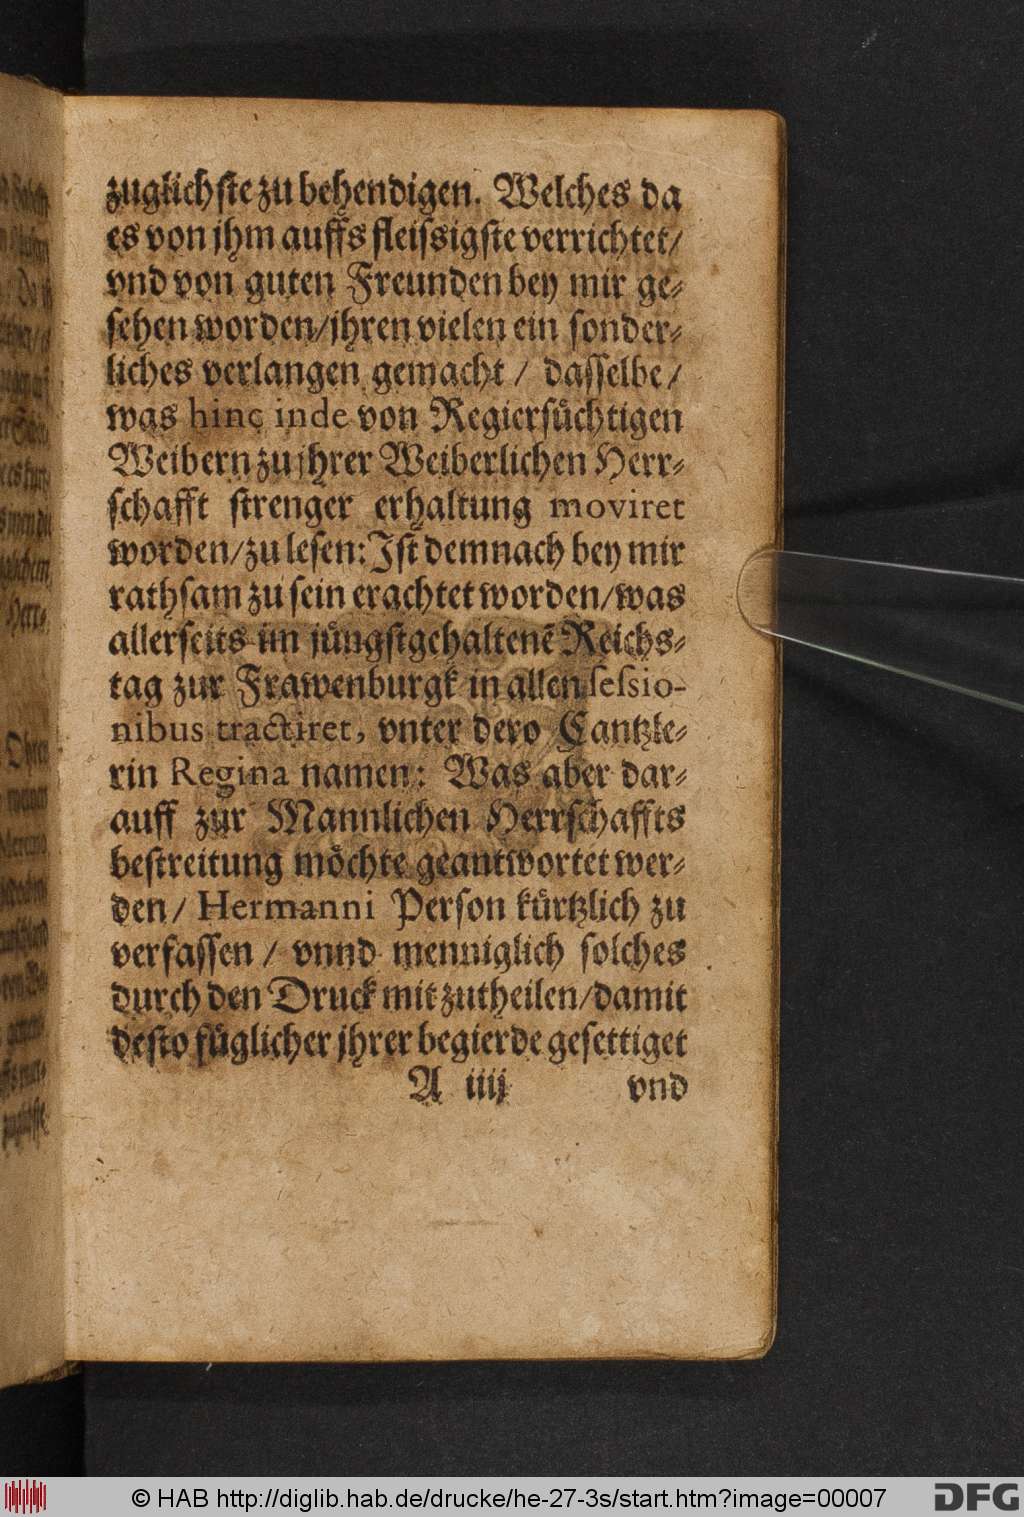 zuglichste zu behendigen. Welches da
es von jhm auffs fleissigste verrichtet/
vnd von guten Freunden bey mir ge⸗
sehen worden/jhren vielen ein sonder⸗
liches verlangen gemacht / dasselbe/
was hinc inde von Regiersuͤchtigen
Weibern zu jhrer Weiberlichen Herr⸗
schafft strenger erhaltung moviret
worden/zu lesen: Jst demnach bey mir
rathsam zu sein erachtet worden/was
allerseits im juͤngstgehaltenē Reichs⸗
tag zur Frawenburgk in allen sessio-
nibus tractiret, vnter dero Cantzle⸗
rin Regina namen: Was aber dar⸗
auff zur Mannlichen Herrschaffts
bestreitung moͤchte geantwortet wer⸗
den/ Hermanni Person kuͤrtzlich zu
verfassen / vnnd menniglich solches
durch den Druck mit zutheilen/damit
desto fuͤglicher jhrer begierde gesettiget
A iiij vnd
© HAB http://diglib.hab.de/drucke/he-27-3s/start.htm?image=00007
DFG